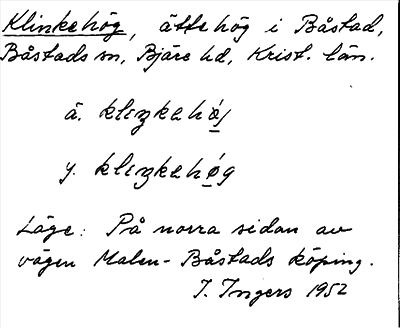 Klinkehög, ättehög i Båstad,
Båstads sn, Bjäre hd, Krist. län.
ä. klɪŋkəhǿj
y. klɪŋkəhǿg
Läge: På norra sidan av
vägen Malen - Båstads köping.
I. Ingers 1952